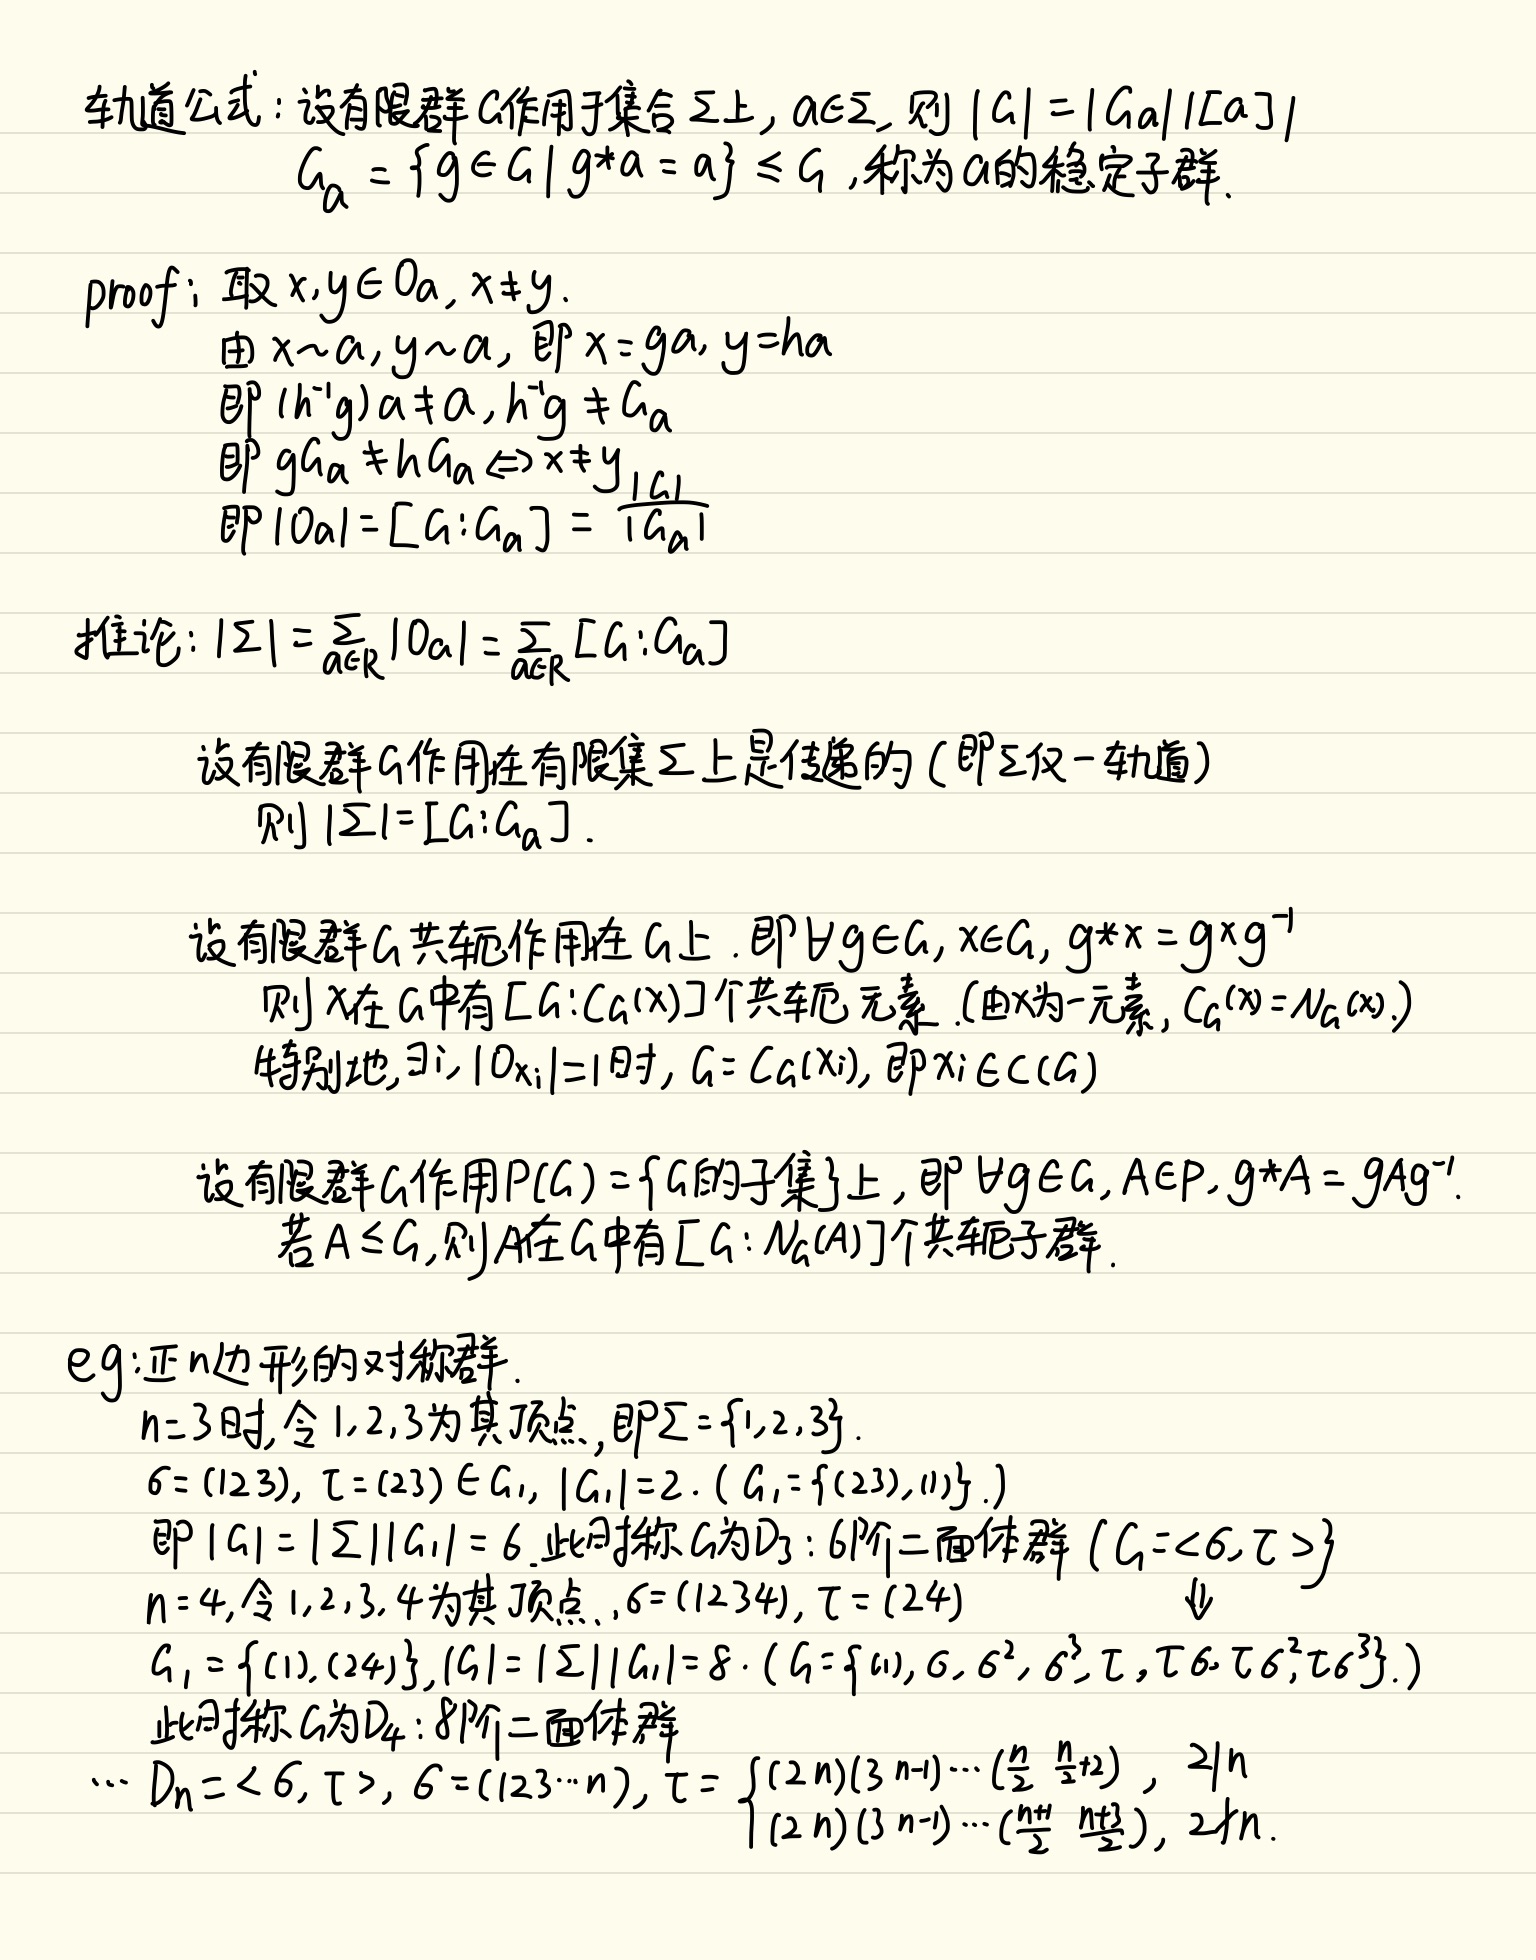 轨道公式:设有限群G作用于集合Σ上, a∈Σ, 则 |G|=|Ga||[a]|
Ga = {g∈G | g*a = a} ≤ G ,称为a的稳定子群.
proof: 取 x,y∈Oa, x≠y.
由 x~a, y~a, 即 x=ga, y=ha
即 (h⁻¹g)a≠a, h⁻¹g ≠ Ga
即 gGa ≠ hGa ⇔ x≠y
即 |Oa| = [G:Ga] = |G|/|Ga|
推论: |Σ| = Σ_{a∈R} |Oa| = Σ_{a∈R} [G:Ga]
设有限群G作用在有限集Σ上是传递的 (即Σ仅一轨道)
则 |Σ|=[G:Ga].
设有限群G共轭作用在G上. 即∀g∈G, x∈G, g*x = gxg⁻¹
则 x在G中有[G:C_G(x)]个共轭元素.(由x为一元素, C_G(x)=N_G(x).)
特别地,∃i, |Oxi|=1时, G=C_G(xi), 即xi∈C(G)
设有限群G作用P(G)={G的子集}上, 即∀g∈G, A∈P, g*A = gAg⁻¹.
若A≤G,则A在G中有[G:N_G(A)]个共轭子群.
eg:正n边形的对称群.
n=3时,令1,2,3为其顶点,即Σ={1,2,3}.
σ=(123), τ=(23)∈G₁, |G₁|=2. (G₁={(23),(1)}.)
即|G|=|Σ||G₁|=6.此时称G为D₃:6阶二面体群 (G=<σ,τ>}
n=4,令1,2,3,4为其顶点,σ=(1234), τ=(24) ⇓
G₁={(1),(24)},|G|=|Σ||G₁|=8. (G={(1), σ, σ², σ³, τ, τσ, τσ², τσ³}.)
此时称G为D₄:8阶二面体群
… Dn=<σ,τ>, σ=(123…n), τ= { (2 n)(3 n-1)…(n/2 n/2+2), 2|n
(2 n)(3 n-1)…((n+1)/2 (n+3)/2), 2∤n.